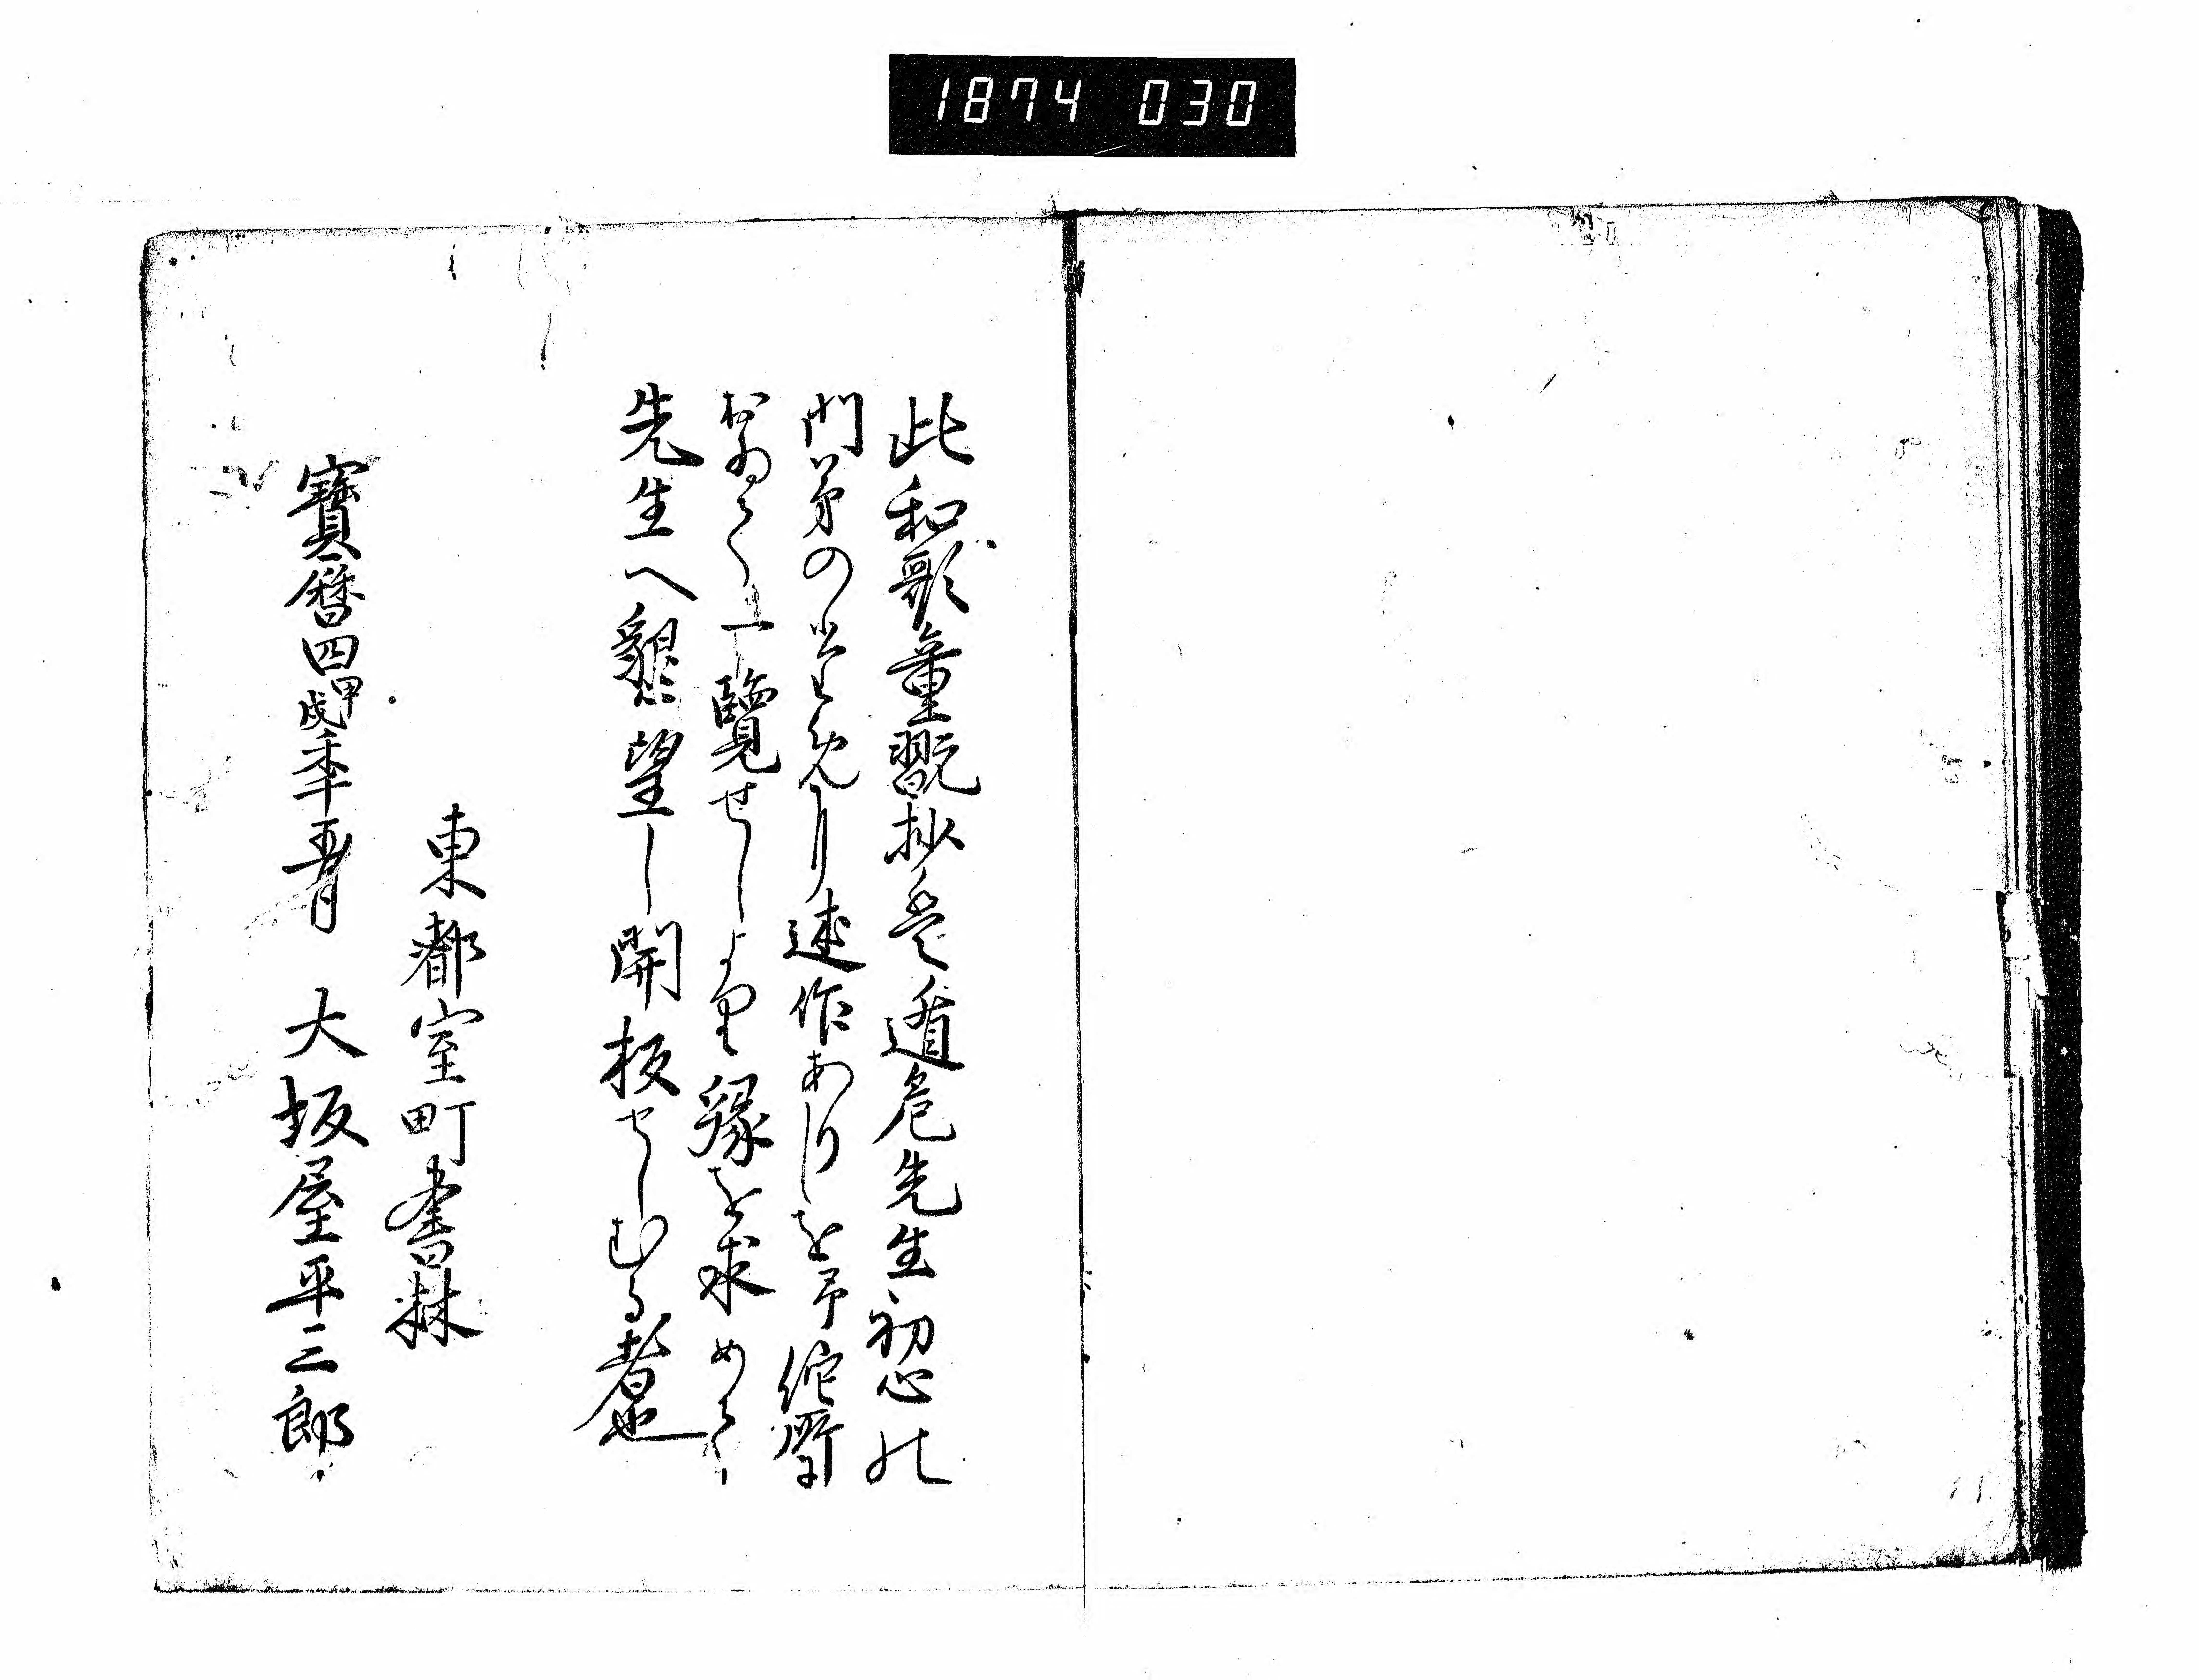 1874 030
此和歌童翫抄全遁危先生初心の
門弟のために述作ありしを予他所に
おゐて一覧せしより縁を求めて
先生へ懇望し開板せしむる者也
東都室町書林
寳暦四甲戌季五月 大坂屋平三郎